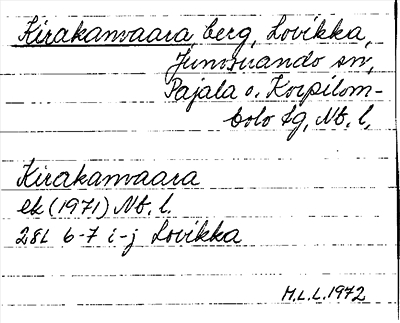 Kirakanvaara berg, Lovikka,
Junosuando sn,
Pajala o. Korpilom-
bolo tg, Nb. l.
Kirakanvaara
ek (1971) Nb. l.
28L 6-7 i-j Lovikka
H.L.L. 1972